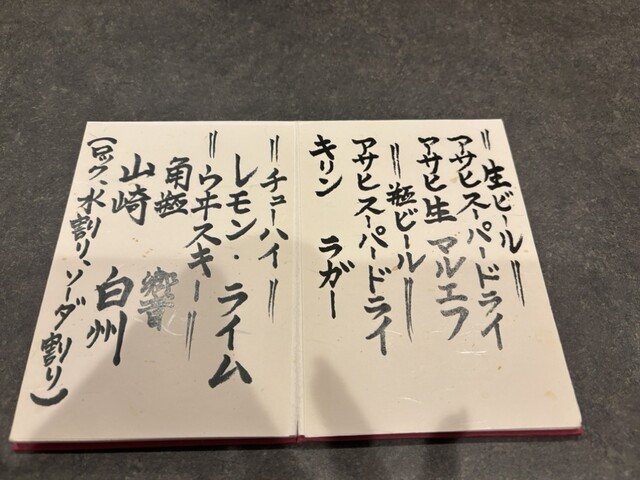 ＝生ビール＝
アサヒスーパードライ
アサヒ生 マルエフ
＝瓶ビール＝
アサヒスーパードライ
キリン ラガー
＝チューハイ＝
レモン・ライム
＝ウヰスキー＝
角瓶 響
山崎 白州
（ロック、水割り、ソーダ割り）